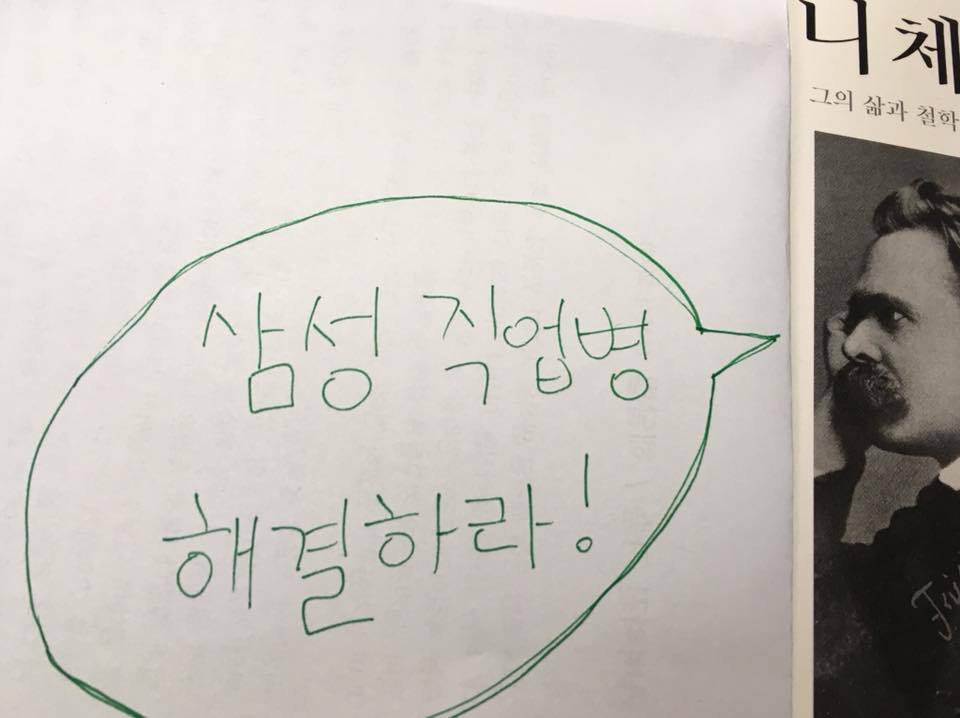 삼성 직업병
해결하라!
니체
그의 삶과 철학